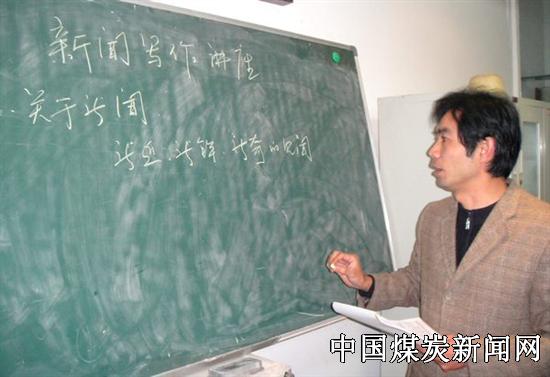 新闻写作讲座
关于新闻
新近、新鲜、新奇的见闻
中国煤炭新闻网